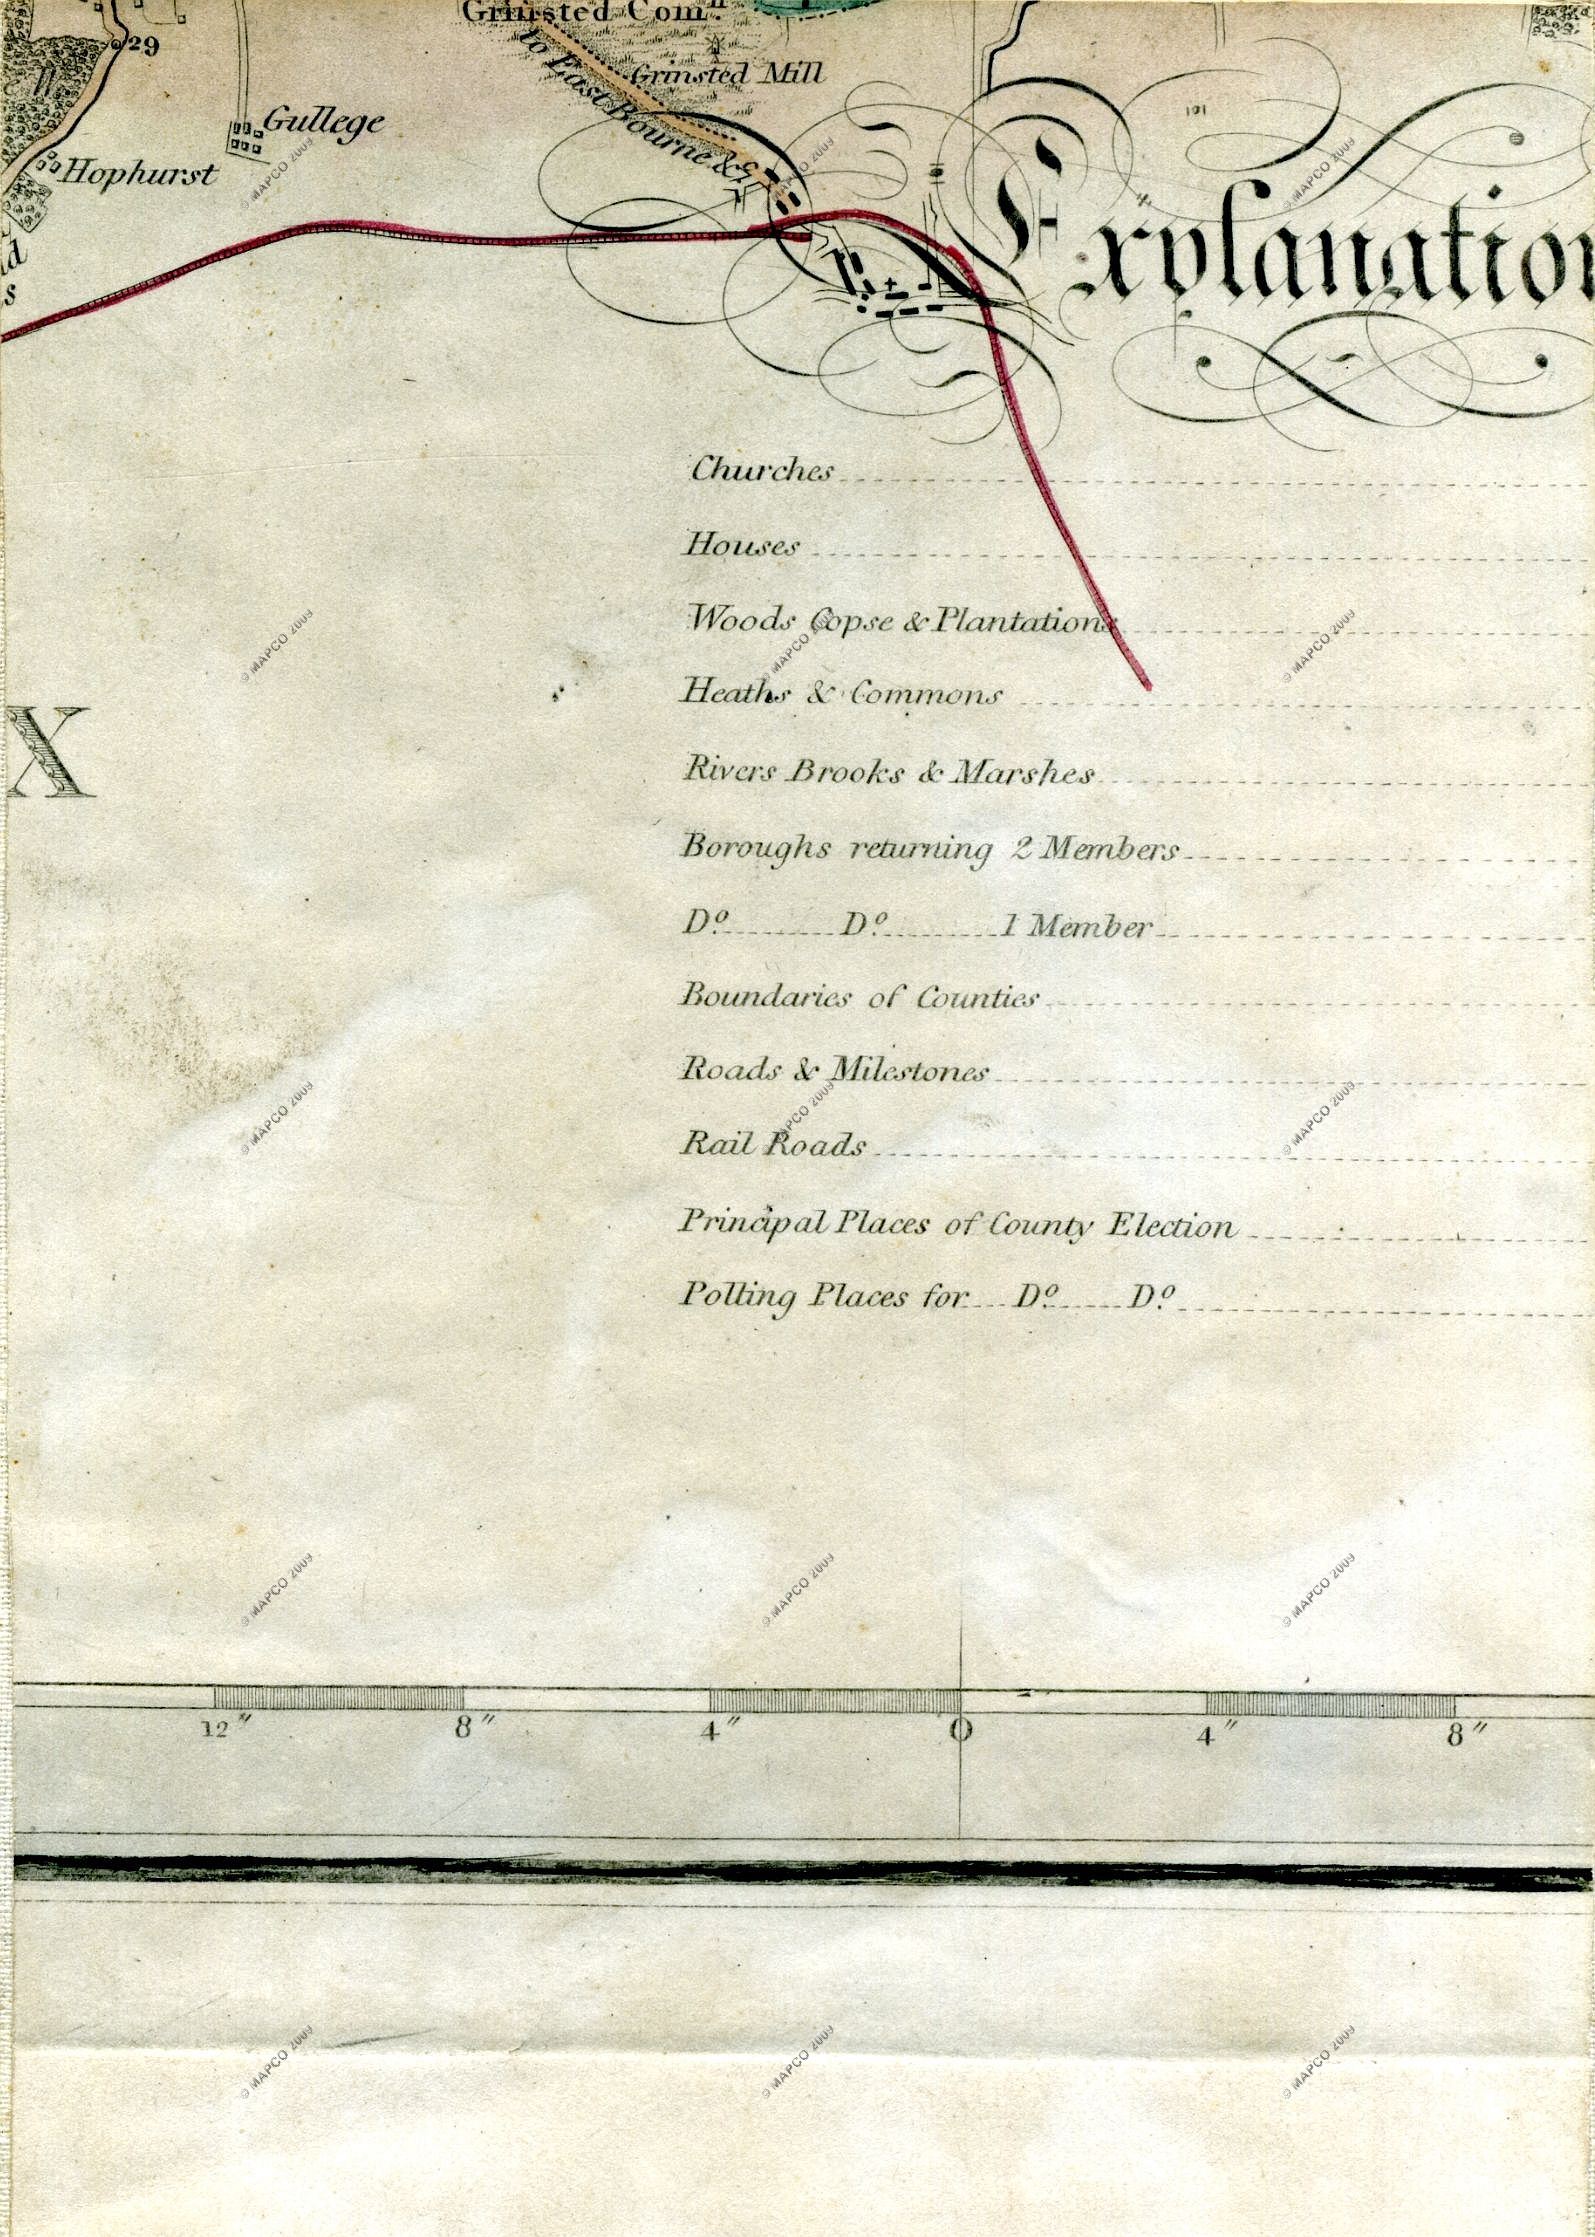 Grinsted Com.n
29
to East Bourne &c
Grinsted Mill
Gullege
Hophurst
ld
s
Explanation
Churches
Houses
Woods Copse & Plantations
Heaths & Commons
X
Rivers Brooks & Marshes
Boroughs returning 2 Members
Do. Do. 1 Member
Boundaries of Counties
Roads & Milestones
Rail Roads
Principal Places of County Election
Polling Places for Do. Do.
12" 8" 4" 0 4" 8"
© MAPCO 2009